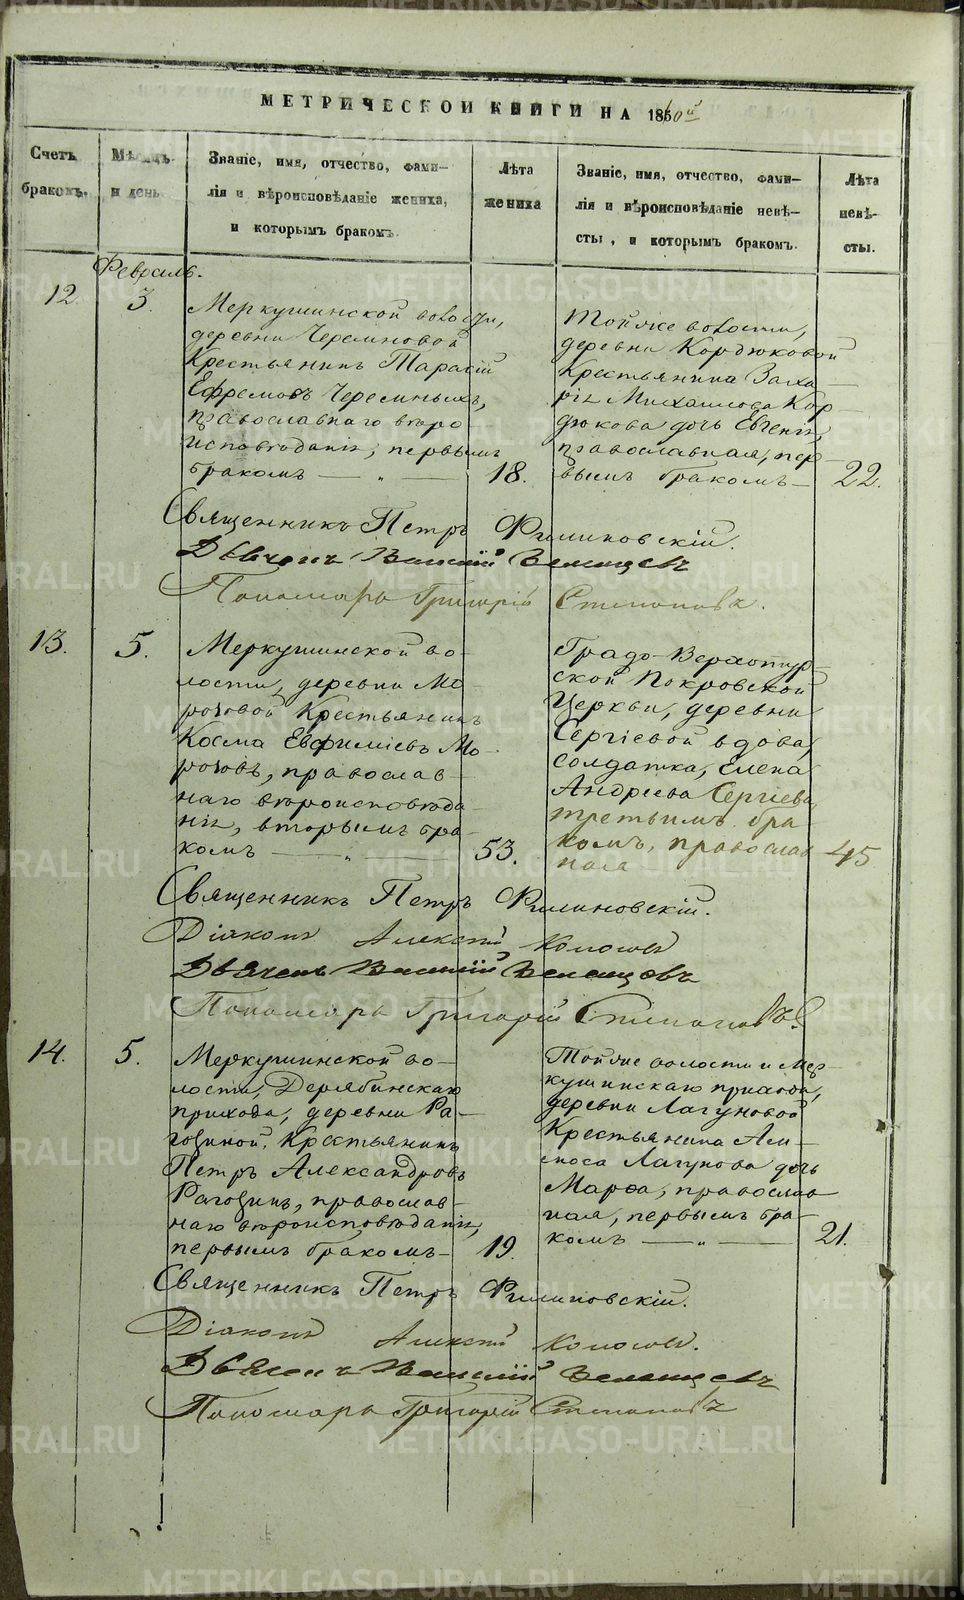 МЕТРИЧЕСКОЙ КНИГИ НА 1860й
Счетъ
браковъ.
Мѣсяцъ
и день
Званіе, имя, отчество, фами-
лія и вѣроисповѣданіе жениха,
и которымъ бракомъ.
Лѣта
жениха
Званіе, имя, отчество, фами-
лія и вѣроисповѣданіе невѣ-
сты, и которымъ бракомъ.
Лѣта
невѣ-
сты.
Февраль.
12.
3.
Меркушинской волости,
деревни Черемновой
Крестьянинъ Тарасій
Ефремовъ
православнаго вѣро
исповѣданія, первымъ
бракомъ — „ —
18.
Тойже волости,
деревни Кордюковой
Крестьянина Заха
рія Михаилова Кор
дюкова дочь Евгенія,
православная, пер
вымъ бракомъ —
22.
Священникъ Петръ Филиповскій.
Дьячекъ Василій
Пономарь Григорій Степановъ.
13.
5.
Меркушинской во-
лости, деревни Мо
розовой Крестьянинъ
Косма Евфиміевъ Мо
розовъ, православ-
наго вѣроисповѣда-
нія, вторымъ бра-
комъ — „ —
53.
Градо-Верхотур-
ской Покровской
Церкви, деревни
Сергіевой вдова,
солдатка, Елена
Андреева Сергіева,
третьимъ бра-
комъ, православ
ная
45
Священникъ Петръ Филиповскій.
Діаконъ Алексій
Дьячекъ Василій
Пономарь Григорій Степановъ
14.
5.
Меркушинской во-
лости, Дерябинскаго
прихода, деревни Ра-
гозиной, Крестьянинъ
Петръ Александровъ
Рагозинъ, православ-
наго вѣроисповѣданія,
первымъ бракомъ —
19.
Тойже волости и Мер-
кушинскаго прихода,
деревни Лагуновой
Крестьянина
Лагунова дочь
Марѳа, православ
ная, первымъ бра-
комъ — „ —
21.
Священникъ Петръ Филиповскій.
Діаконъ Алексій
Дьячекъ Василій
Пономарь Григорій Степановъ
METRIKI.GASO-URAL.RU